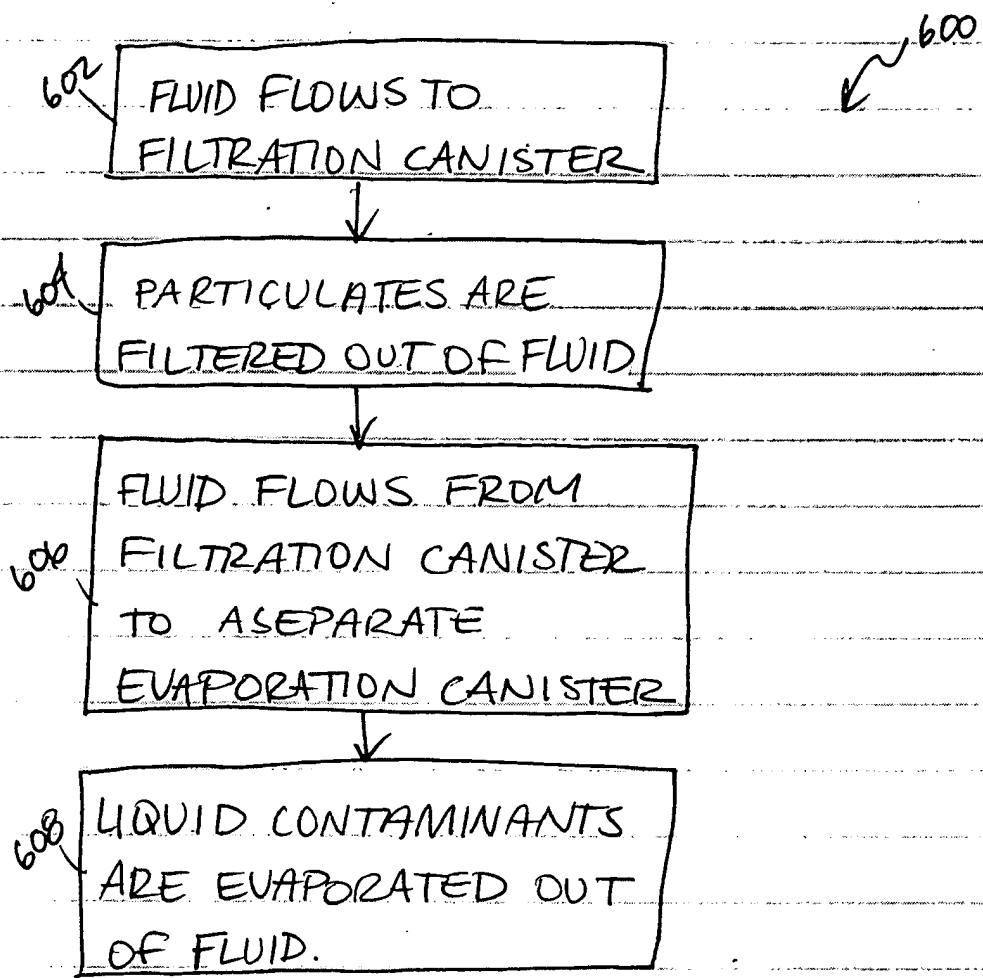 600
602
FLUID FLOWS TO
FILTRATION CANISTER
604
PARTICULATES ARE
FILTERED OUT OF FLUID
606
FLUID FLOWS FROM
FILTRATION CANISTER
TO A SEPARATE
EVAPORATION CANISTER
608
LIQUID CONTAMINANTS
ARE EVAPORATED OUT
OF FLUID.